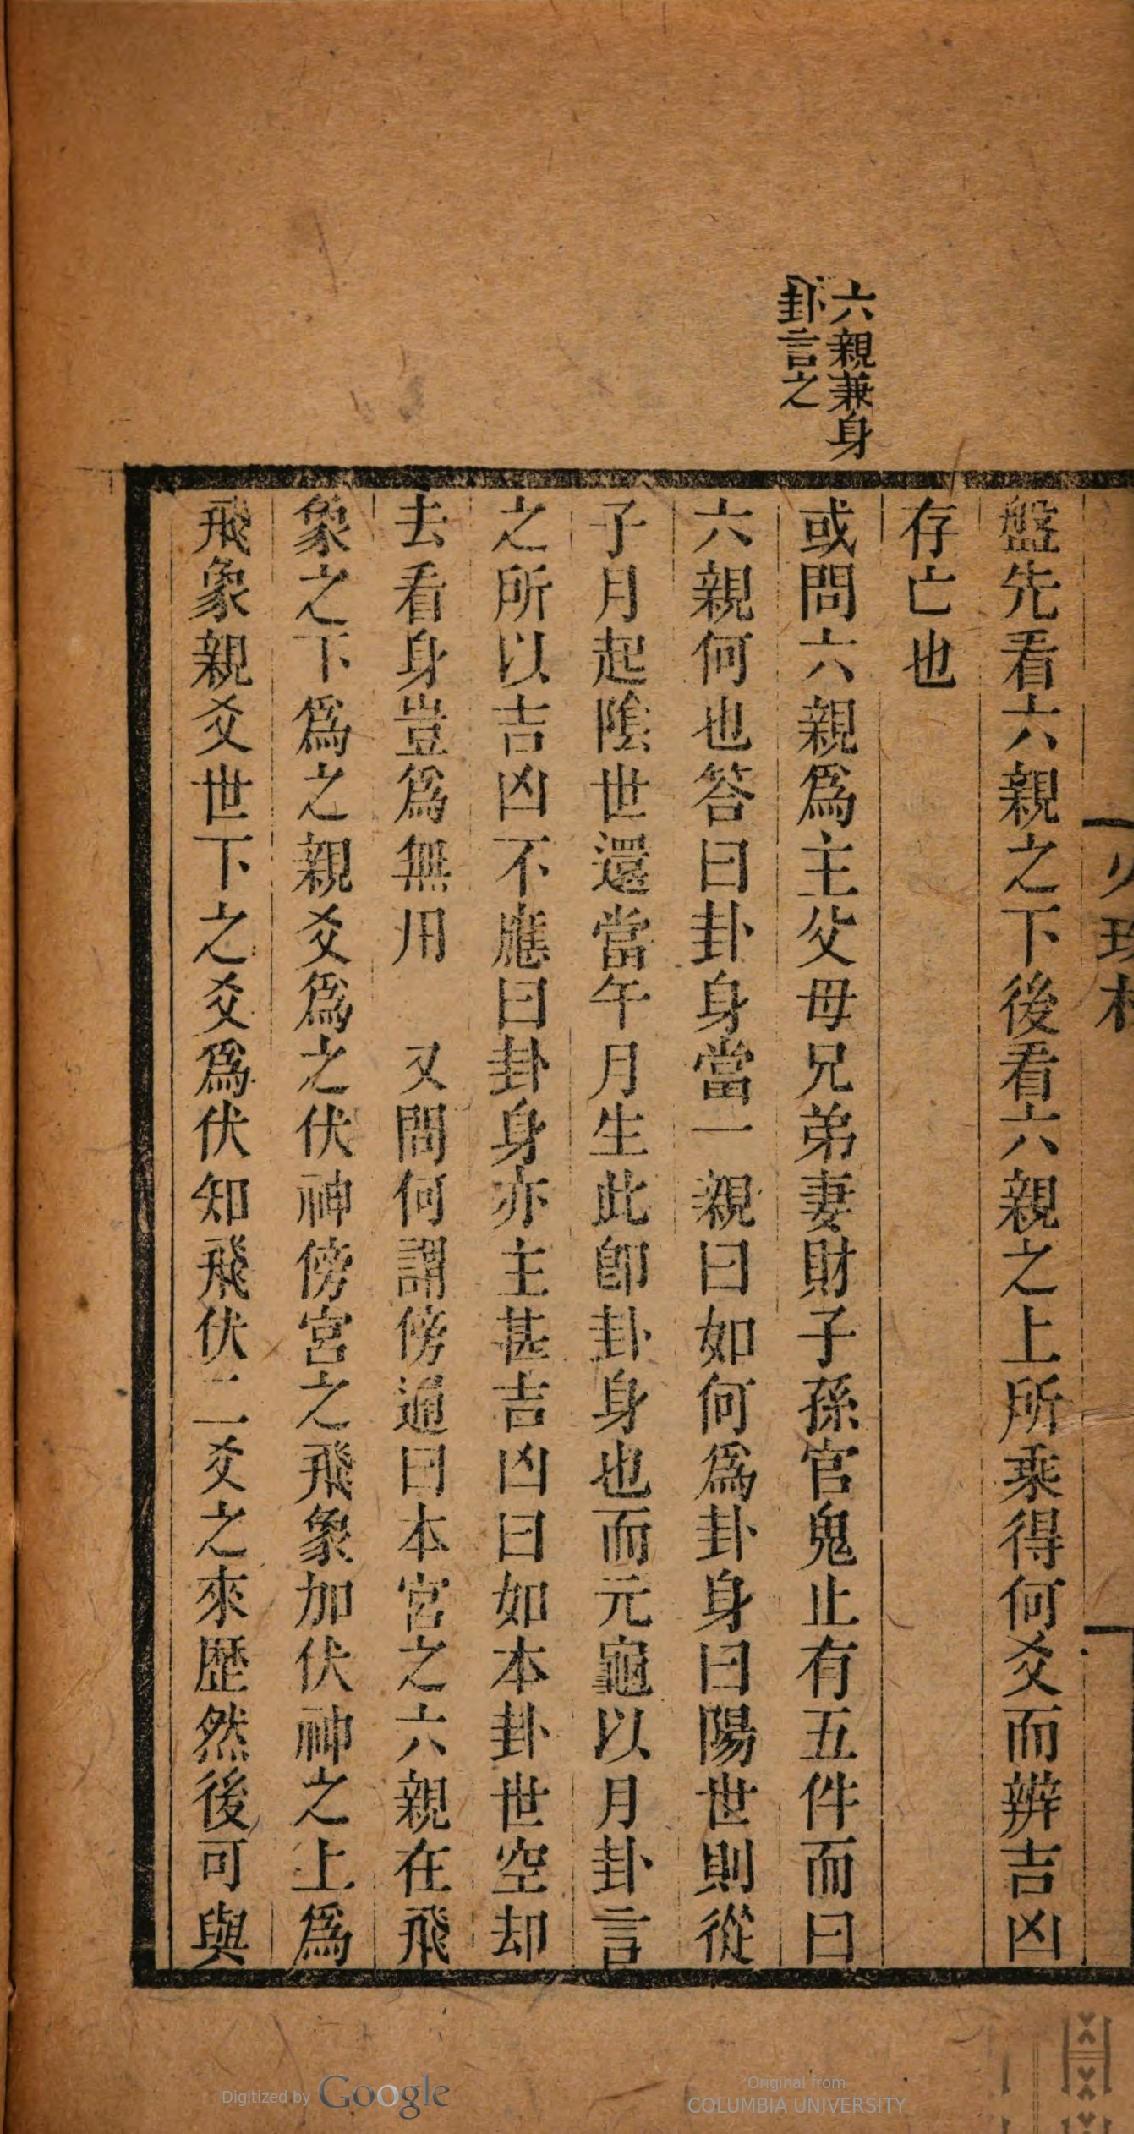 盤先看六親之下後看六親之上所乘得何爻而辨吉凶
存亡也
六親兼身
卦言之
或問六親爲主父母兄弟妻財子孫官鬼止有五件而曰
六親何也答曰卦身當一親曰如何爲卦身曰陽世則從
子月起陰世還當午月生此卽卦身也而元龜以月卦言
之所以吉凶不應曰卦身亦主甚吉凶曰如本卦世空却
去看身豈爲無用　又問何謂傍通曰本宮之六親在飛
象之下爲之親爻爲之伏神傍宮之飛象加伏神之上爲
飛象親爻世下之爻爲伏知飛伏二爻之來歷然後可與
Digitized by Google
Original from
COLUMBIA UNIVERSITY